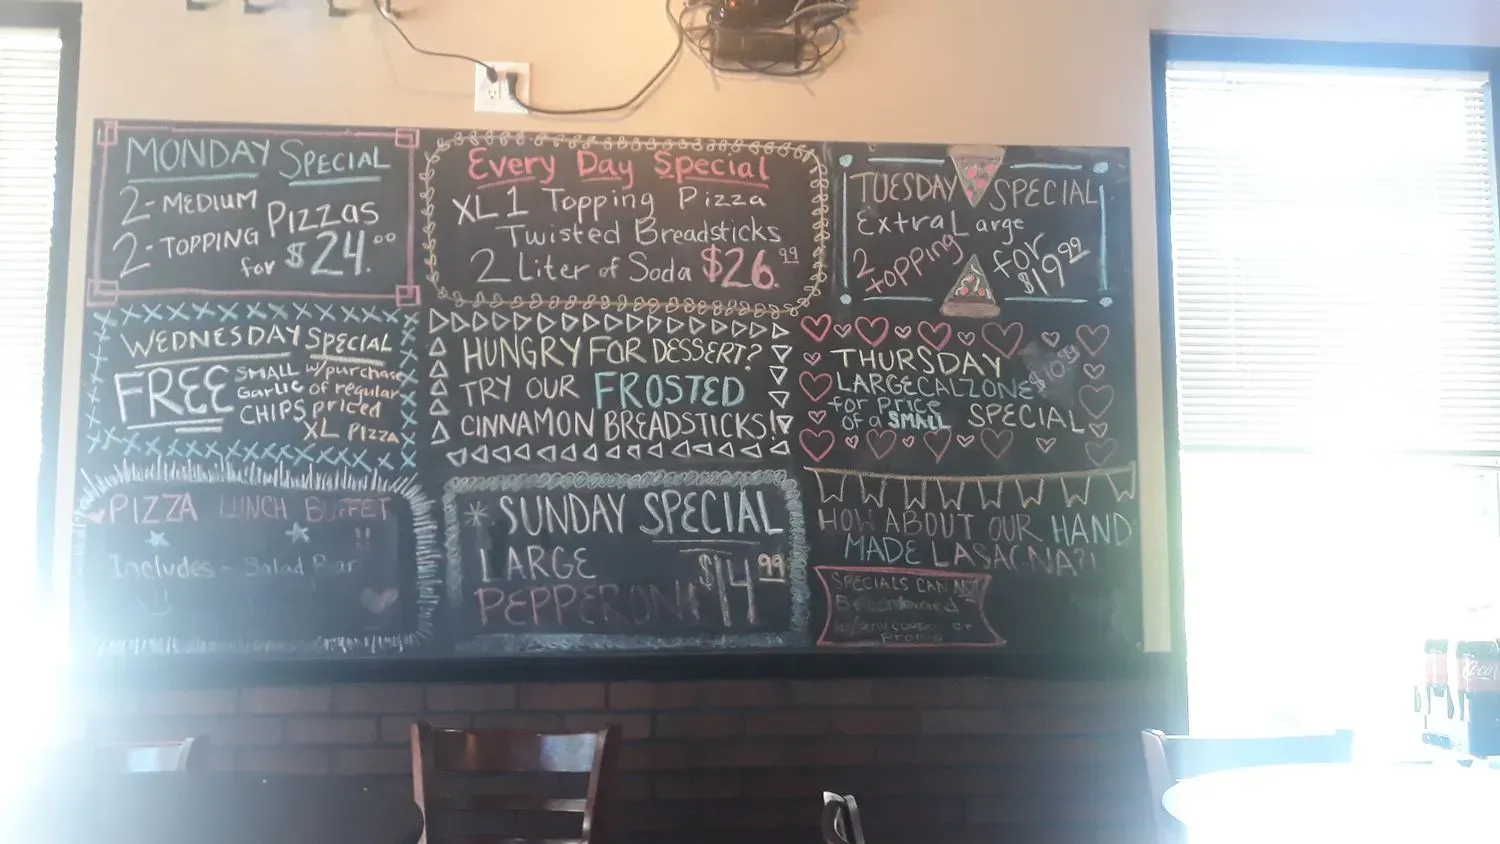 MONDAY SPECIAL
2-MEDIUM
2-TOPPING PIZZAS
for $24.00
Every Day Special
XL 1 Topping Pizza
Twisted Breadsticks
2 Liter of Soda $26.99
TUESDAY SPECIAL
Extra Large
2 topping for
$19.99
WEDNESDAY SPECIAL
FREE SMALL w/purchase
Garlic of regular
CHIPS priced
XL PIZZA
HUNGRY FOR DESSERT?
TRY OUR FROSTED
CINNAMON BREADSTICKS!
THURSDAY
LARGE CALZONE $10.99
for Price
of a SMALL SPECIAL
PIZZA LUNCH BUFFET
!!
Includes - Salad Bar
* SUNDAY SPECIAL
LARGE
PEPPERONI $14.99
HOW ABOUT OUR HAND
MADE LASAGNA?!
SPECIALS CAN NOT
or
promo
Coca